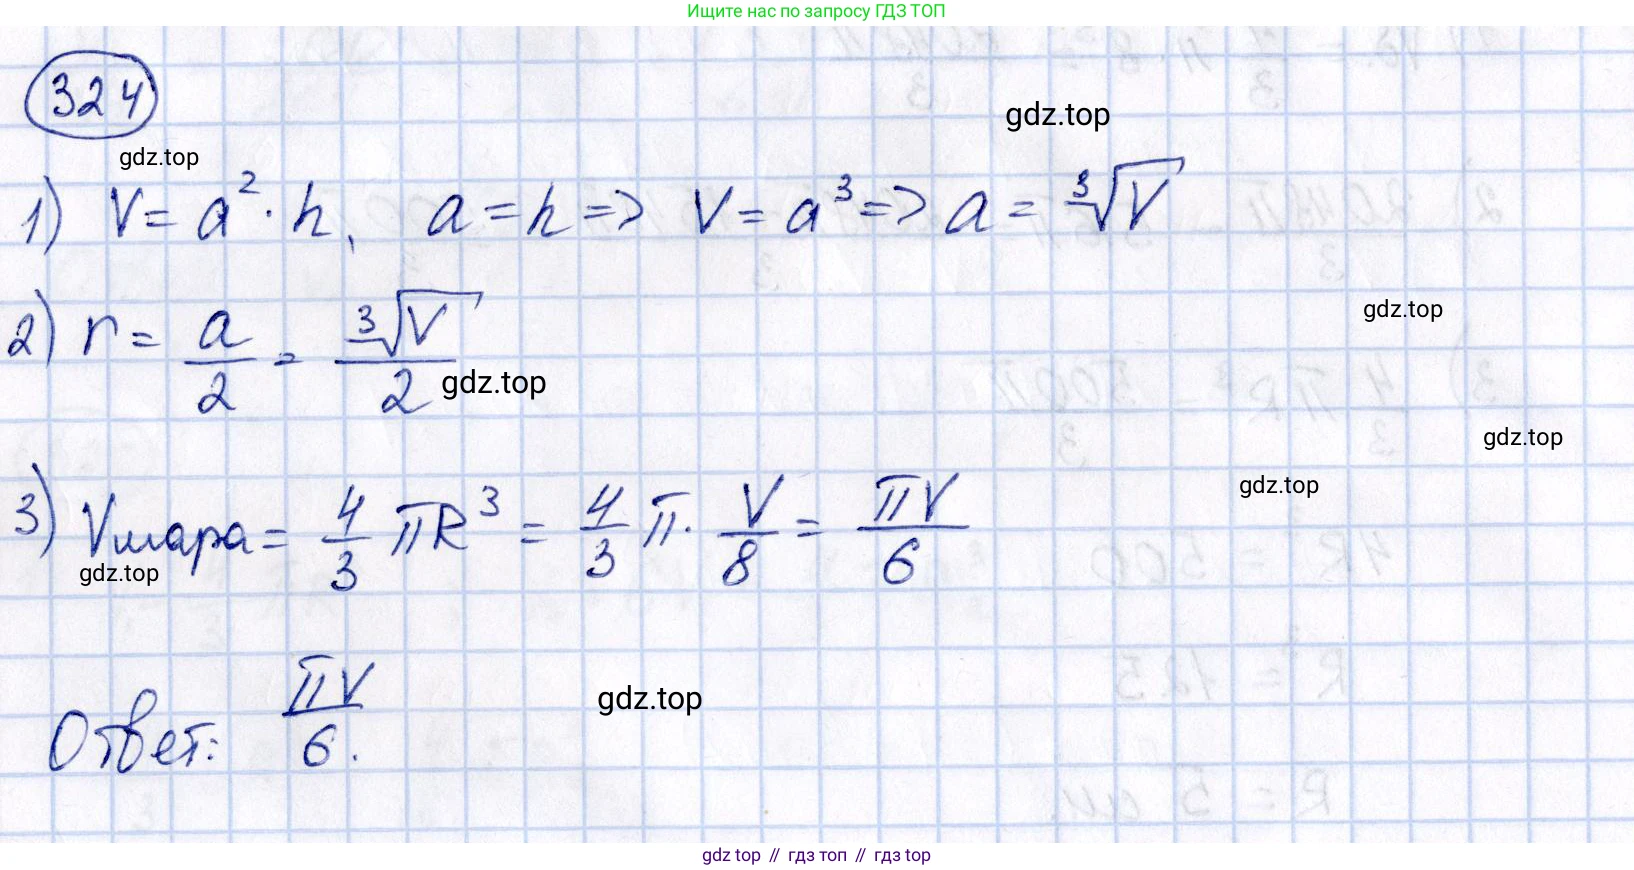 Ищите нас по запросу ГДЗ ТОП
324
gdz.top
gdz.top
1) V = a² · h, a = h => V = a³ => a = ³√V
2) r = a/2 = ³√V/2
gdz.top
gdz.top
gdz.top
gdz.top
3) Vшара = 4/3 πR³ = 4/3 π · V/8 = πV/6
gdz.top
Ответ: πV/6.
gdz.top
gdz top // гдз топ // гдз top